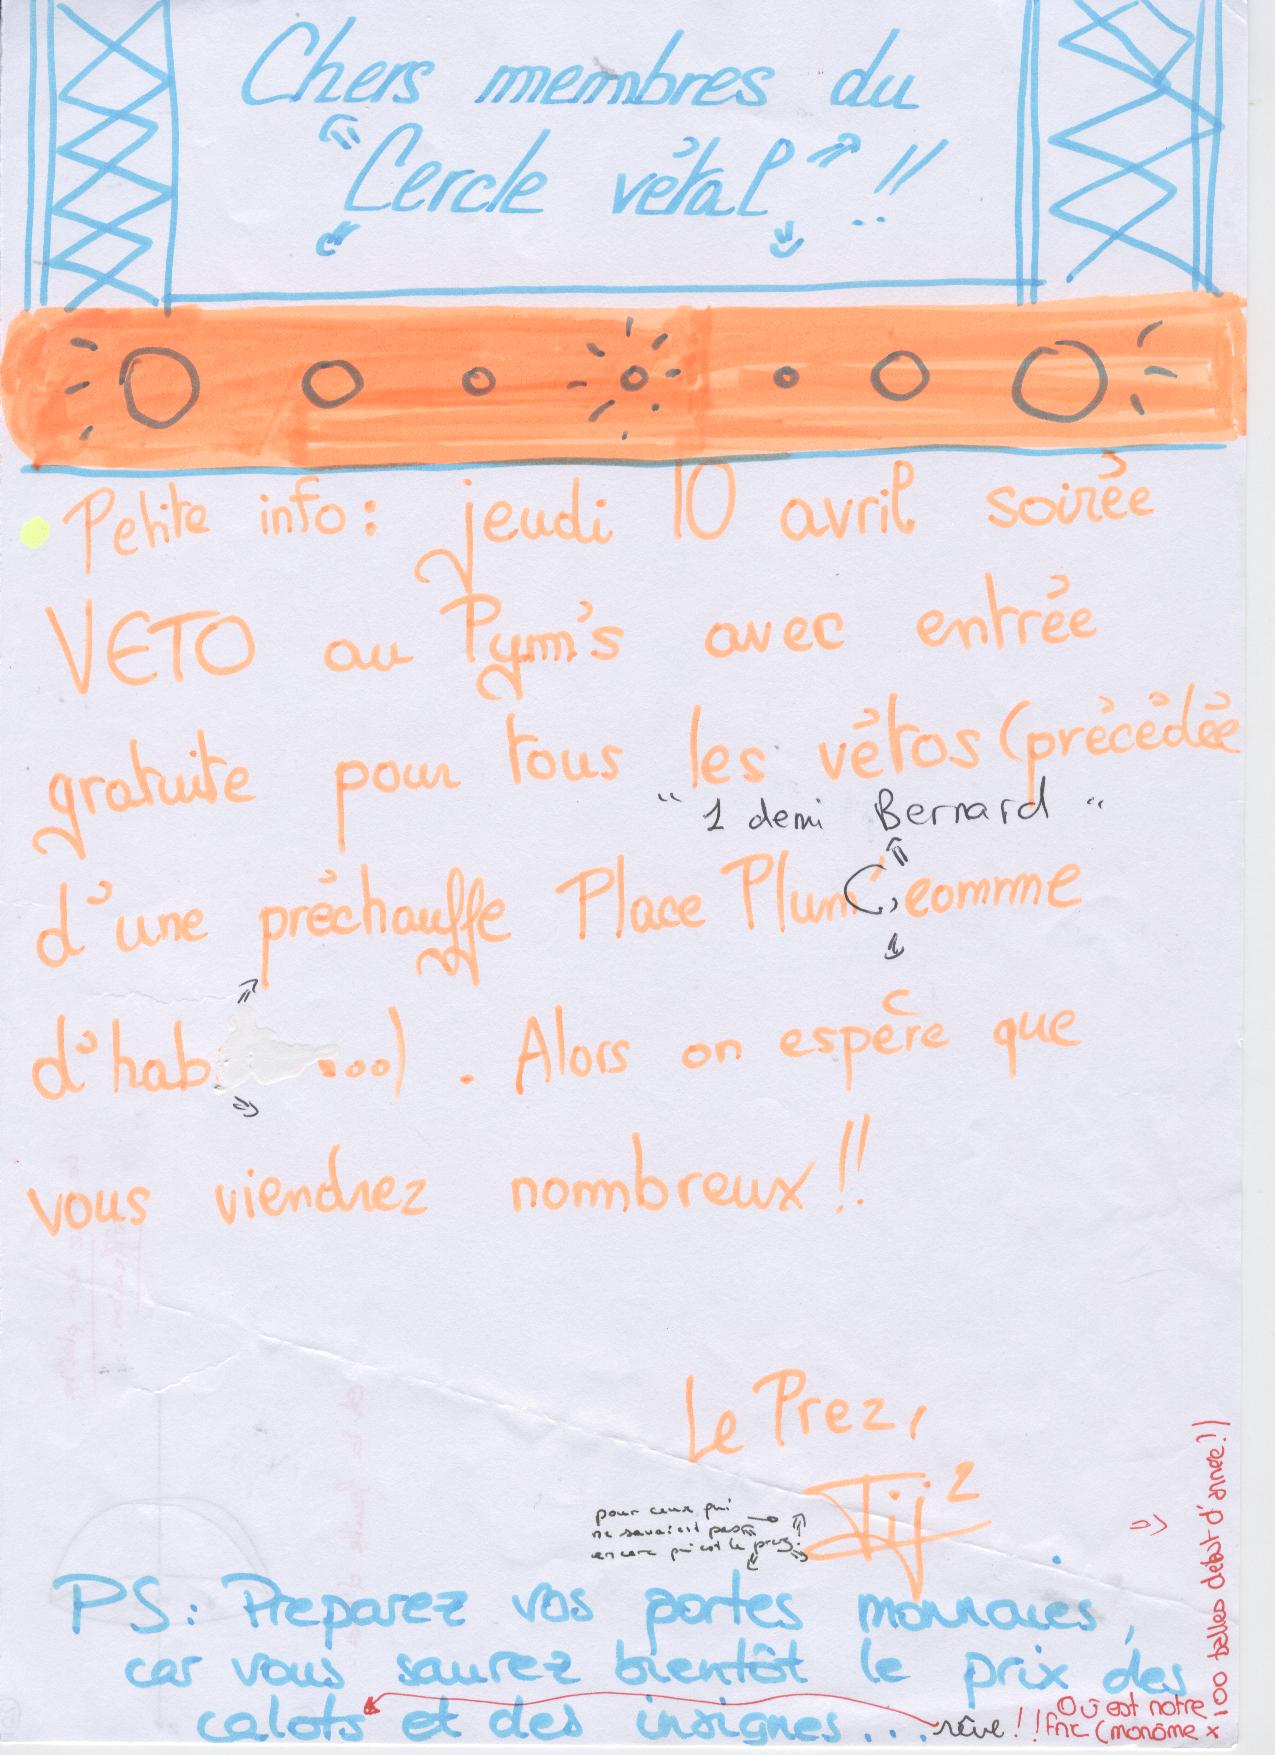 Chers membres du
"Cercle vétal" !!
Petite info : jeudi 10 avril soirée
VETO au Pym's avec entrée
gratuite pour tous les vétos (précédée
"1 demi Bernard"
d'une préchauffe Place Plum, comme
d'hab ...) . Alors on espère que
vous viendrez nombreux !!
Le Prez,
Tij²
pour ceux qui
ne savaient pas
encore qui est le prez!
PS : Preparez vos portes monnaies,
car vous saurez bientôt le prix des
calots et des insignes...
rêve !!
Où est notre
fric (monôme x
100 balles début d'année!)